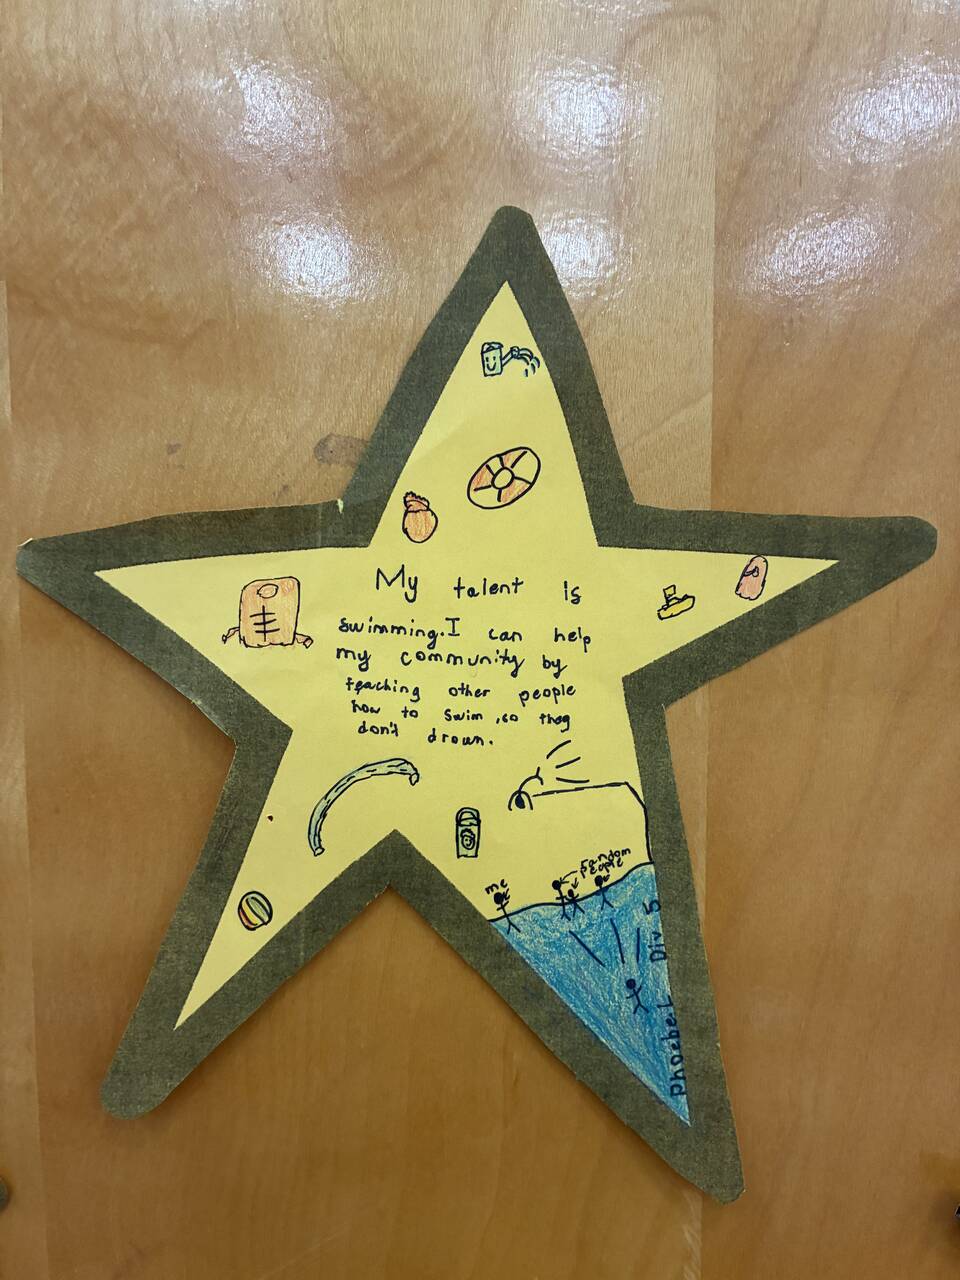 My talent is
swimming. I can help
my community by
teaching other people
how to swim, so they
don't drown.
me
random
people
Phoebe.L Div 5